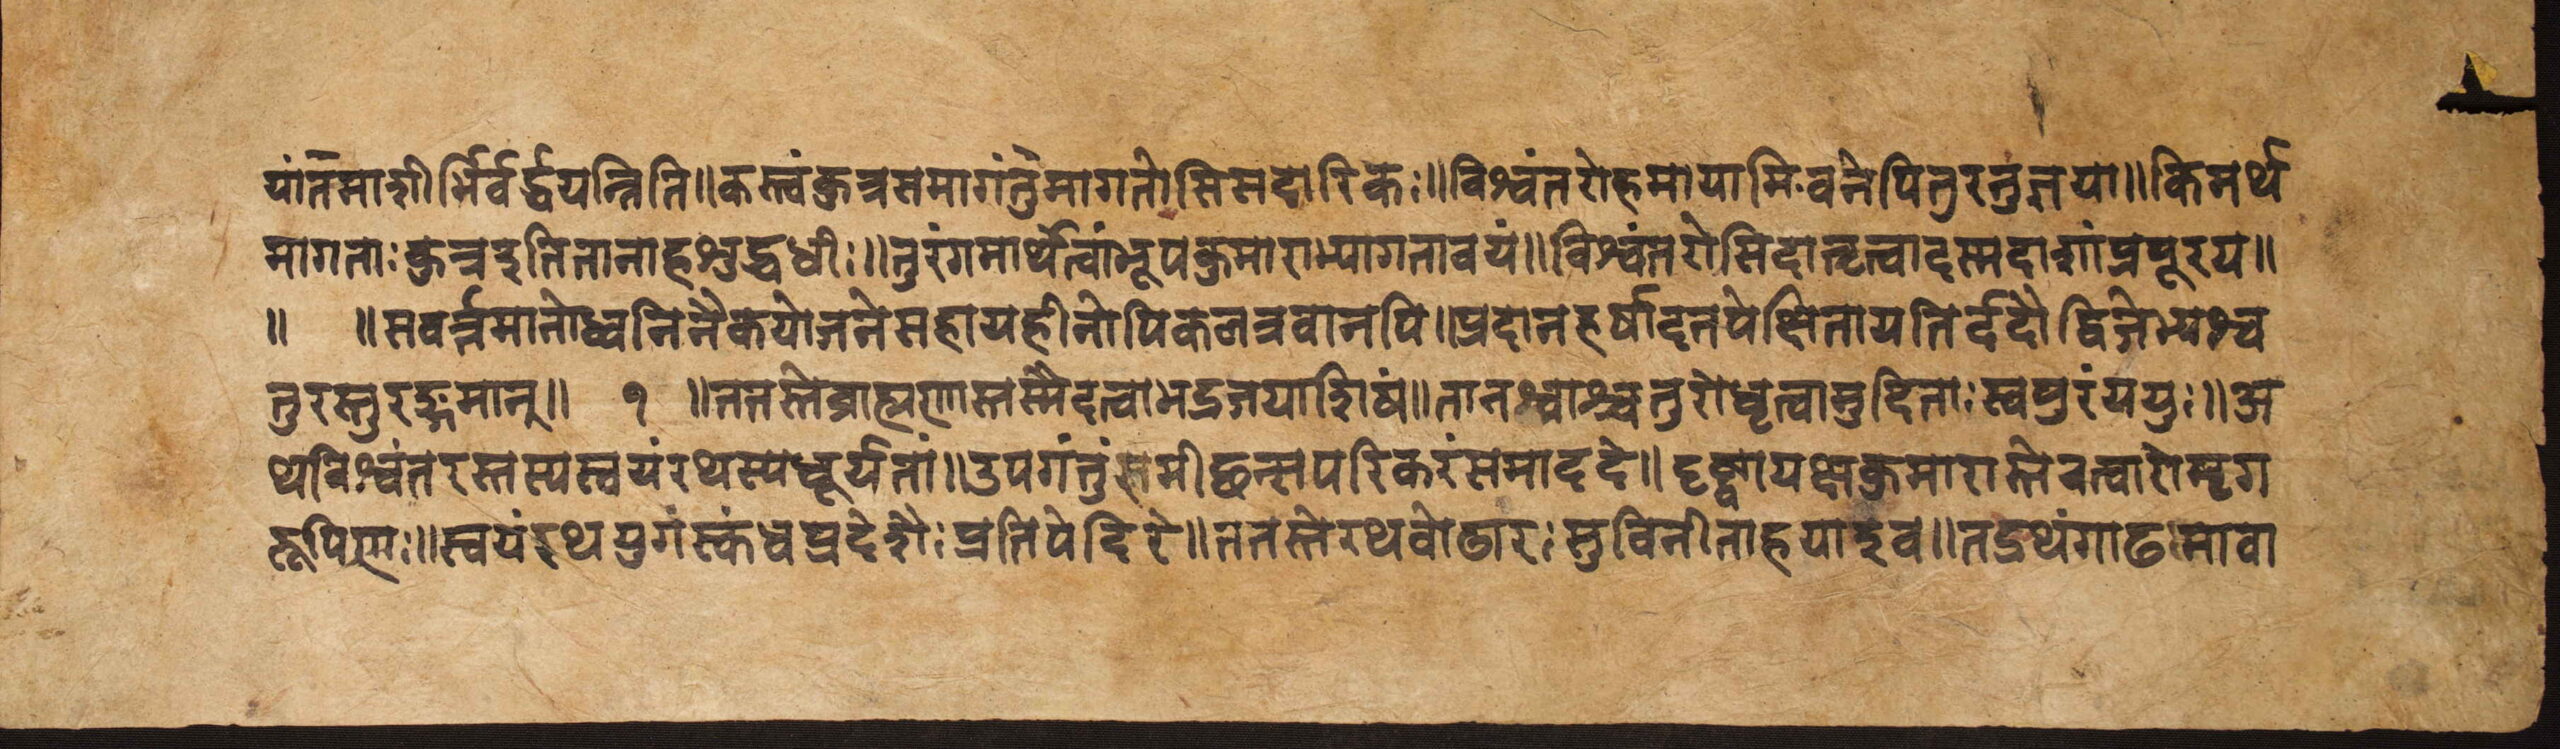 यांतमाशीर्भिर्वर्द्धयन्निति॥कस्त्वंकुत्रसमागंतुमागतोसिसदारिकः॥विश्वंतरोहमायामिवनेपितुरनुज्ञया॥किमर्थ
मागताःकुत्रइतितानाहशुद्धधीः॥तुरंगमार्थेत्वांभूपकुमाराभ्यागतावयं॥विश्वंतरोसिदातृत्वादस्मदाशांप्रपूरय॥
॥ ॥सवर्त्तमानोध्वनिनैकयोजनेसहायहीनोपिकलत्रवानपि॥प्रदानहर्षादनपेक्षितायतिर्ददौद्विजेभ्यश्च
तुरस्तुरङ्गमान्॥ १ ॥ततस्तेब्राह्मणास्तस्मैदत्वाभद्रजयाशिषं॥तानश्वाश्चतुरोधृत्वामुदिताःस्वपुरंययुः॥अ
थविश्वंतरस्तस्यस्वयंरथस्यधूर्यतां॥उपगंतुंसमीछन्सपरिकरंसमाददे॥दृष्ट्वायक्षकुमारास्तेचत्वारोमृग
रूपिणः॥स्वयंरथयुगंस्कंधप्रदेशैःप्रतिपेदिरे॥ततस्तेरथवोढारःसुविनीताहयाइव॥तद्रथंगाढमावा